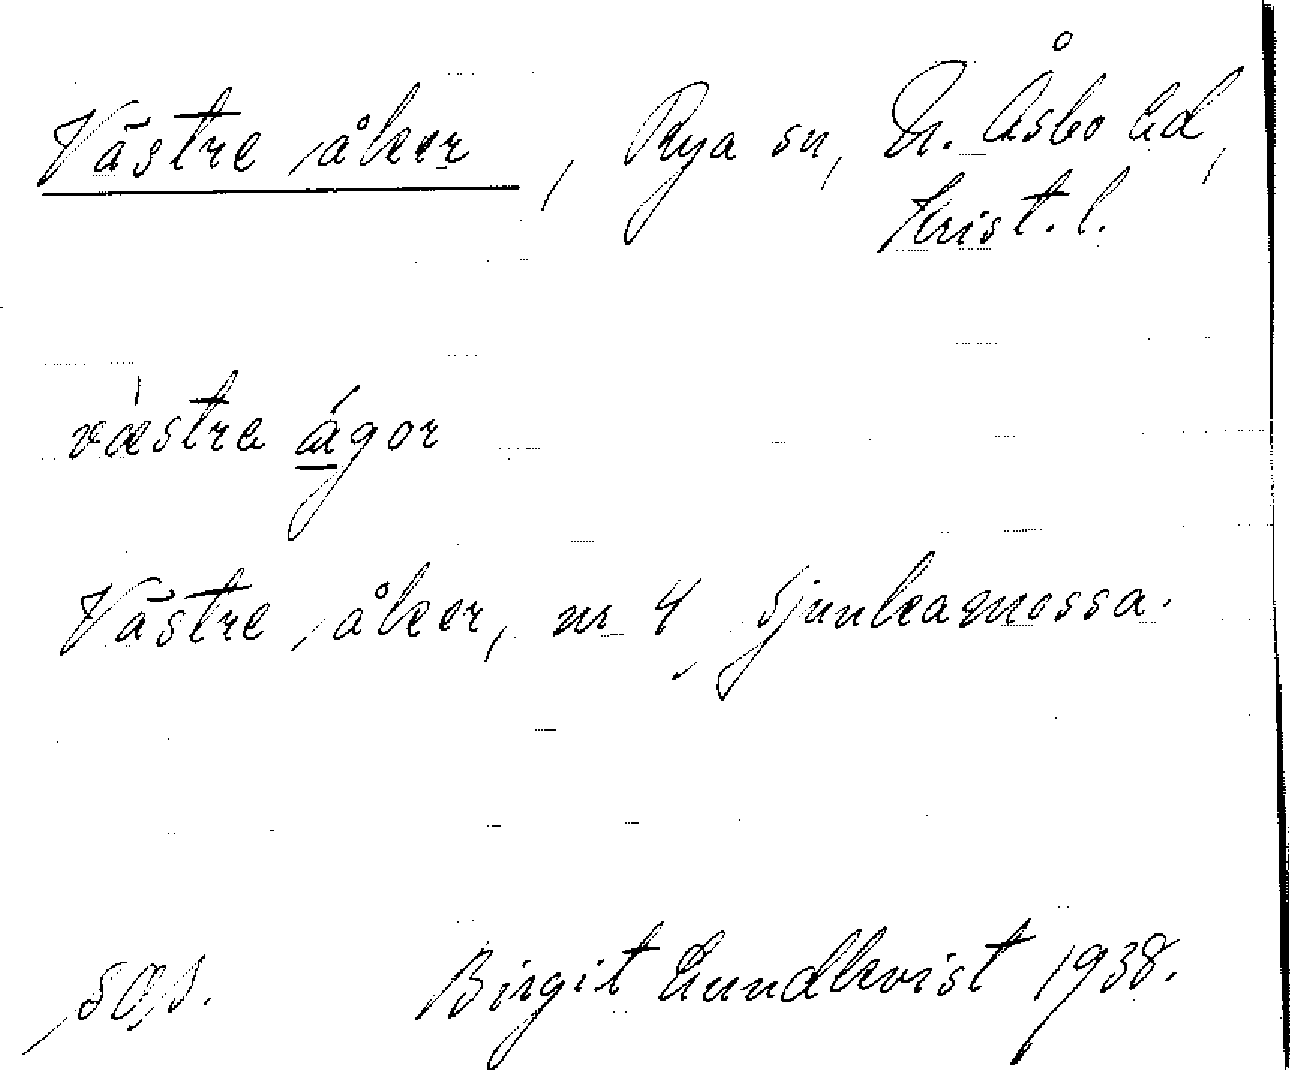 Västre åker, Rya sn, N. Åsbo hd,
Krist. l.
væstre ágor
Västre åker, nr 4 Sjunkamossa.
Birgit Lundkvist 1938.